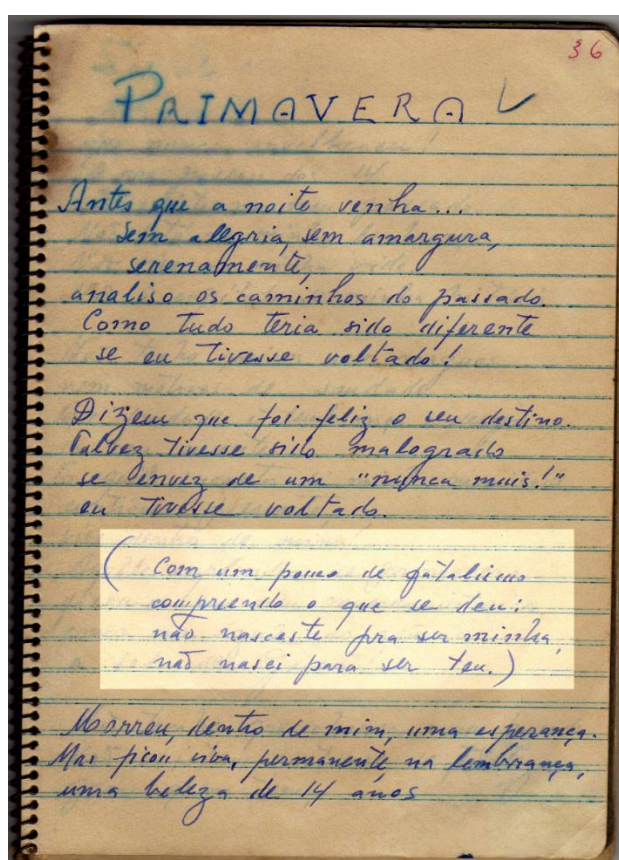 36
PRIMAVERA
Antes que a noite venha...
sem alegria, sem amargura,
serenamente,
analiso os caminhos do passado.
Como tudo teria sido diferente
se eu tivesse voltado!
Dizem que foi feliz o seu destino.
Talvez tivesse sido malogrado
se envez de um "nunca mais!"
eu tivesse voltado.
(Com um pouco de fatalismo
compreendo o que se deu:
não nasceste pra ser minha,
não nasci para ser teu.)
Morreu, dentro de mim, uma esperança.
Mas ficou viva, permanente, na lembrança,
uma beleza de 14 anos